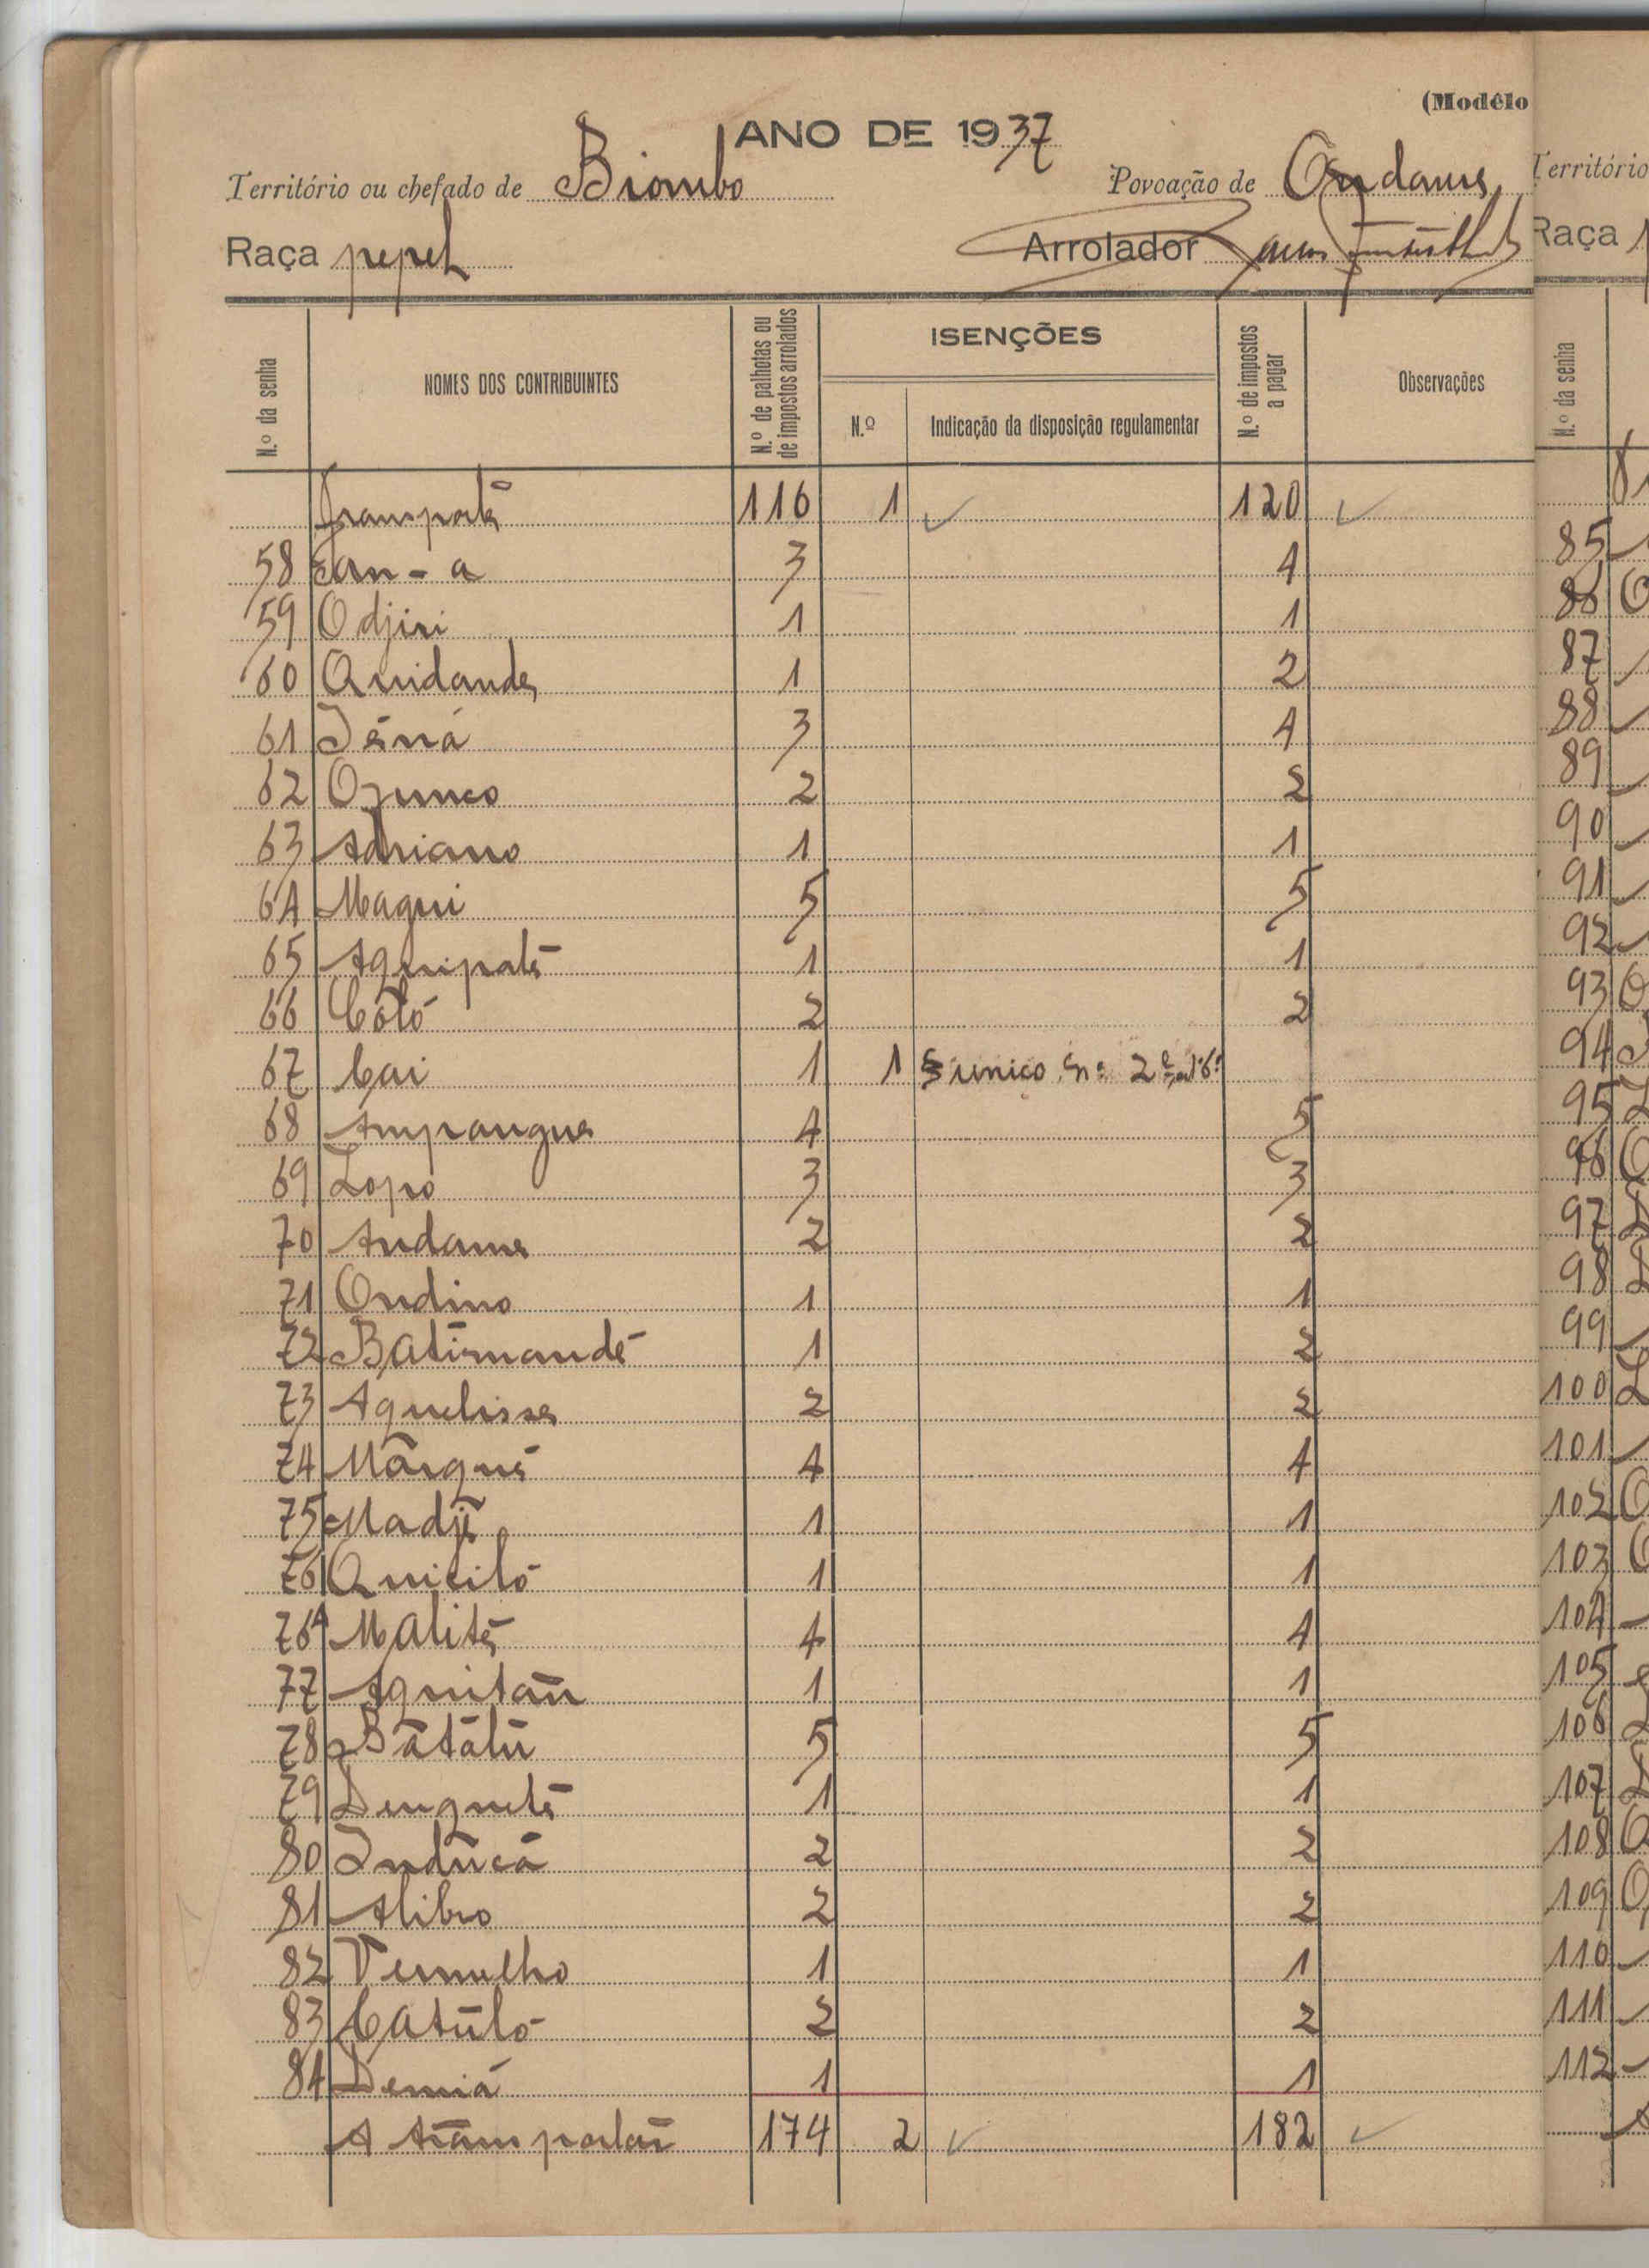 (Modêlo
ANO DE 1937
Território ou chefado de Biombo Povoação de Ondame
Raça pepel Arrolador
N.º da senha NOMES DOS CONTRIBUINTES N.º de palhotas ou de impostos arrolados ISENÇÕES N.º de impostos a pagar Observações
N.º Indicação da disposição regulamentar
Transporte 116 1 ✓ 120 ✓
58 3 4
59 Odjiri 1 1
60 Quidande 1 2
61 3 4
62 2 2
63 Adriano 1 1
64 Maqui 5 5
65 Aquipatê 1 1
66 Côtó 2 2
67 Cai 1 1 § unico, nº 2º
68 Ampangue 4 5
69 Lopo 3 3
70 Andame 2 2
71 Ondino 1 1
72 Batimandé 1 2
73 Aquelisse 2 2
74 4 4
75 Madjé 1 1
76 1 1
76A Malité 4 4
77 1 1
78 5 5
79 Denquetê 1 1
80 Inducá 2 2
81 Alibro 2 2
82 Vermelho 1 1
83 Catúló 2 2
84 1 1
A transportar 174 2 ✓ 182 ✓
Território
Raça
N.º da senha
85
86
87
88
89
90
91
92
93
94
95
96
97
98
99
100
101
102
103
104
105
106
107
108
109
110
111
112